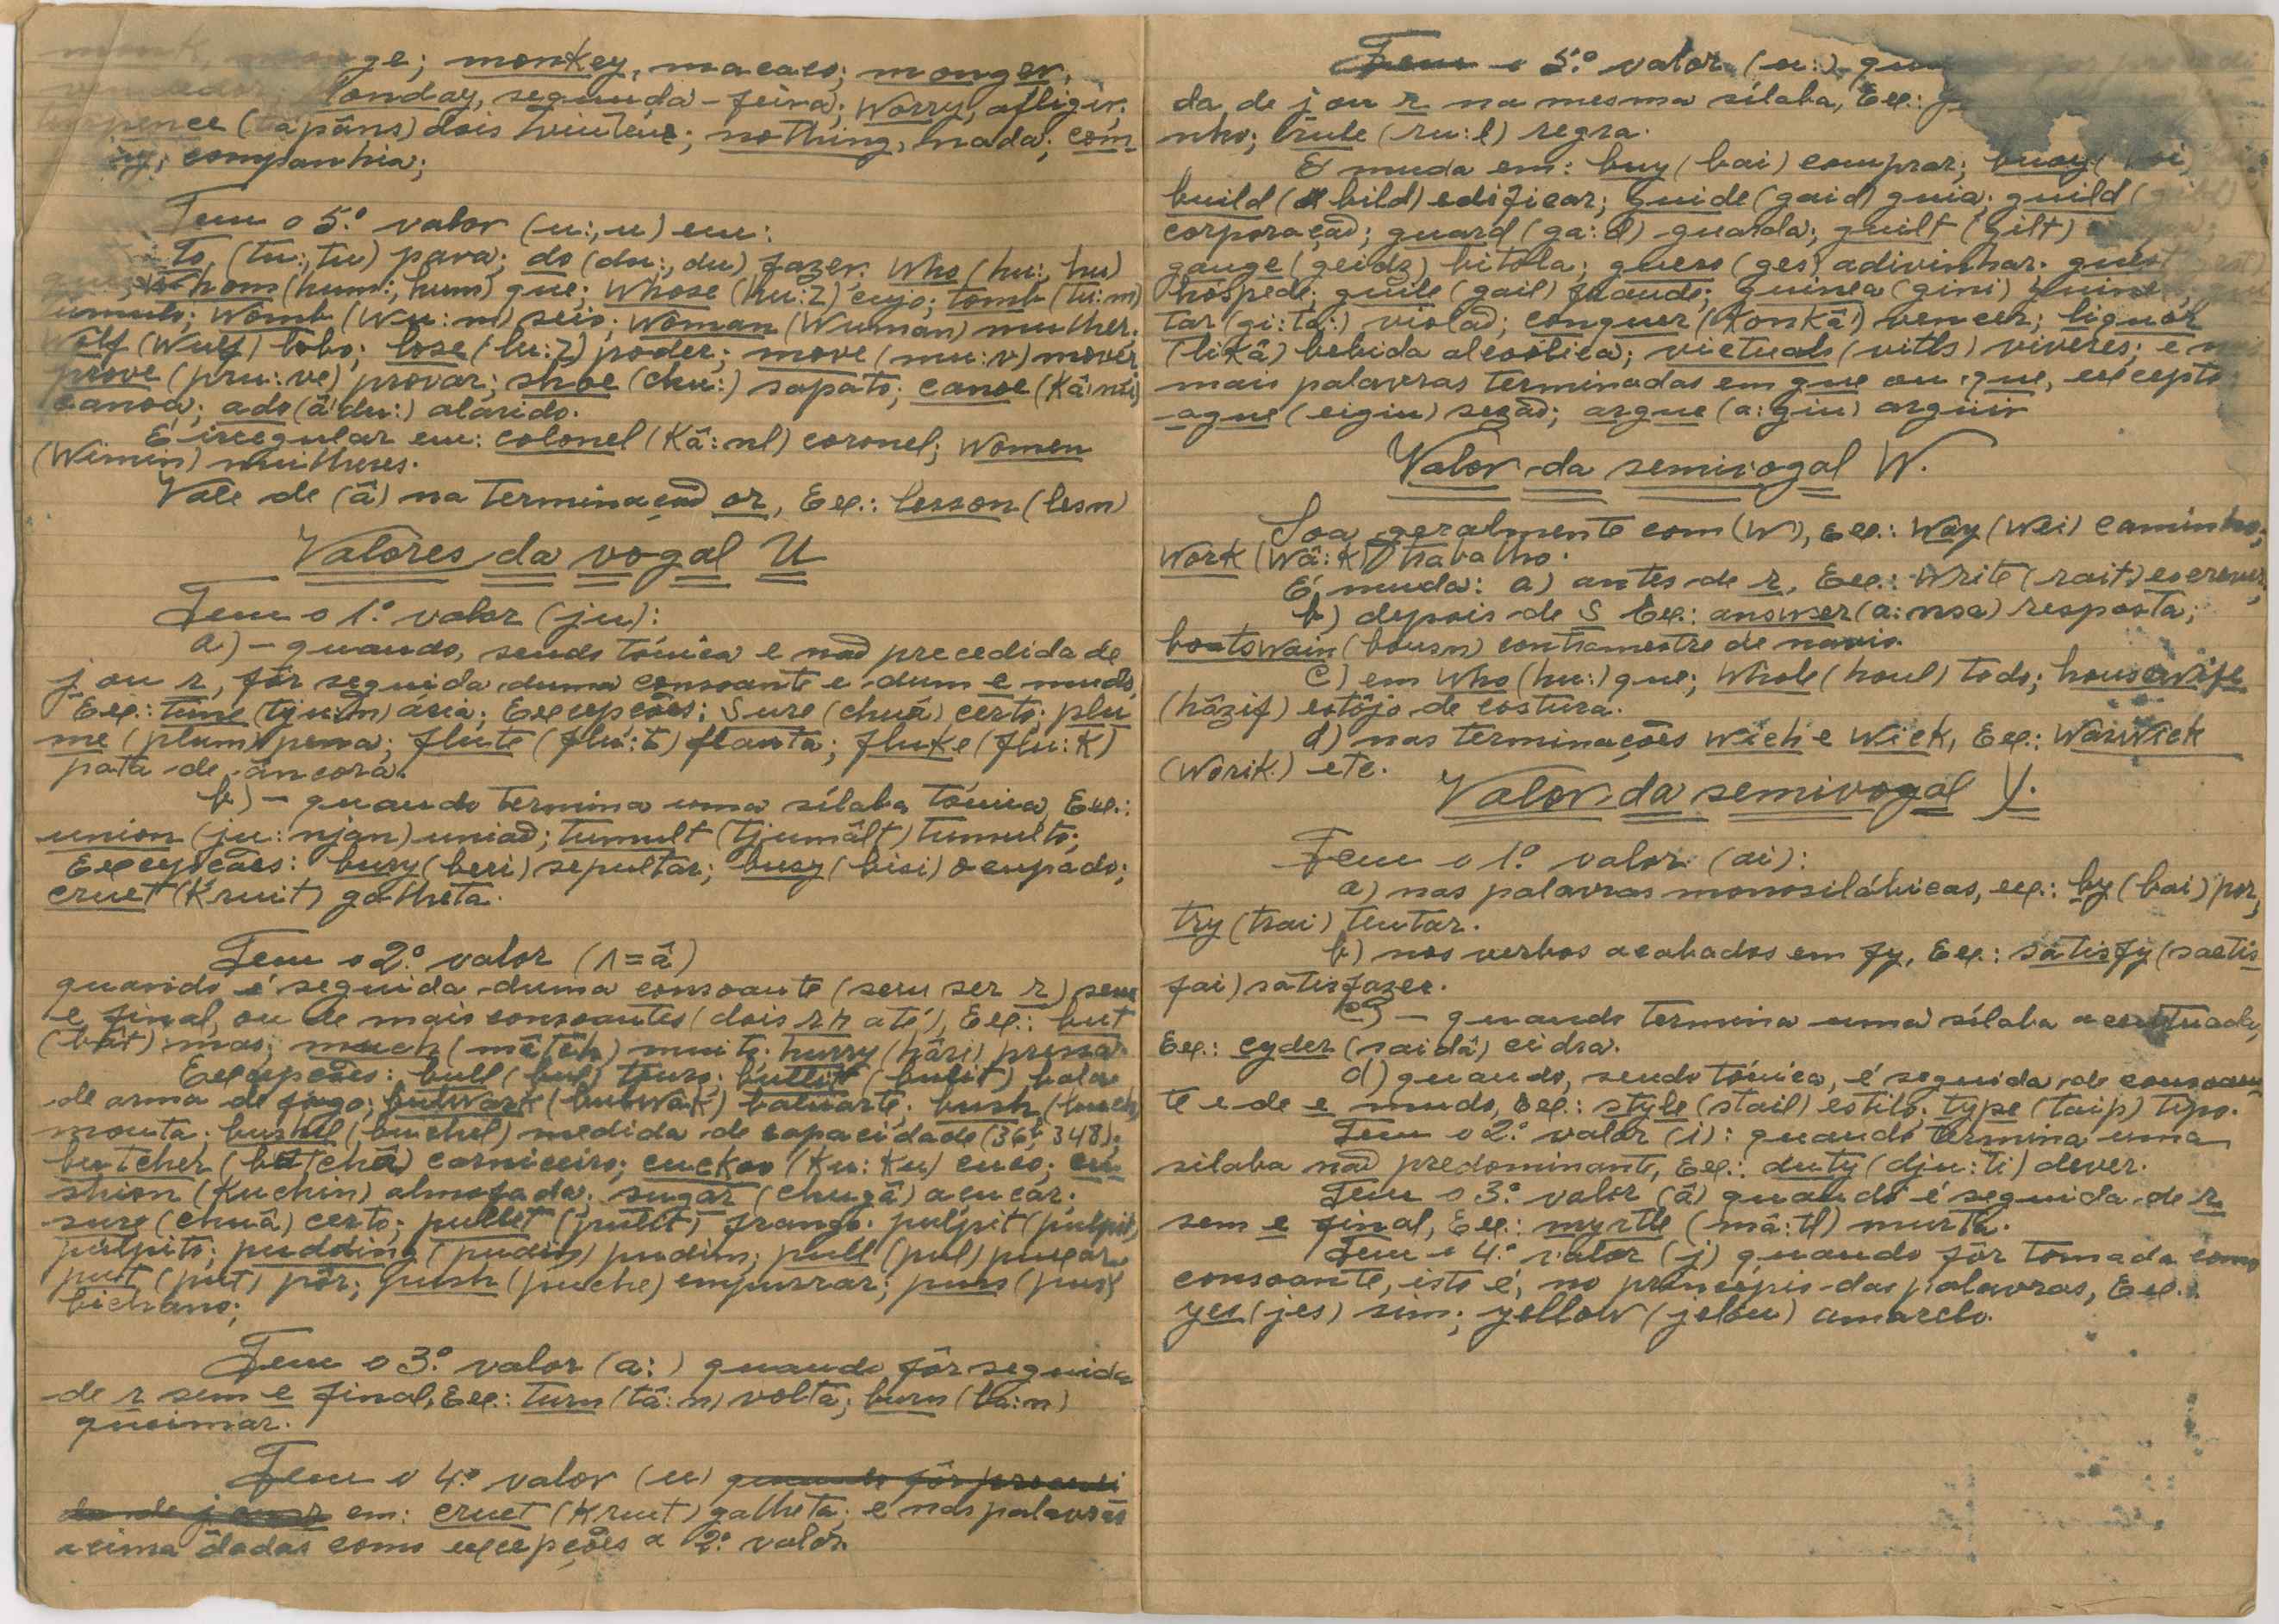 ge; monkey, macaco; monger,
onday, segunda-feira; worry, afligir;
pence (tâpâns) dois vinténs; nothing, nada; com
companhia;
Tem o 5.º valor (u:, u) em:
to, (tu:, tu) para; do (du:, du) fazer; who (hu:, hu)
whom (hum:, hum) que; whose (hu:z) cujo; tomb (tu:m)
tumulo; womb (wu:m) seio; woman (wuman) mulher;
wolf (wulf) lobo; lose (lu:z) poder; move (mu:v) mover
prove (pru:ve) provar; shoe (chu:) sapato; canoe (kânu)
canoa; ado (âdu:) alarido.
É irregular em: colonel (kâ:nl) coronel; women
(wimin) mulheres.
Vale de (â) na terminação or, Ex.: lesson (lesn)
Valores da vogal U
Tem o 1.º valor (ju):
a) - quando, sendo tónica e não precedida de
j ou r, fôr seguida duma consoante e dum e mudo,
Ex.: tune (tjum) ária; Excepções: sure (chuâ) certo; plu
me (plum) pena; flute (flu:t) flauta; fluke (flu:k)
pata de âncora.
b) - quando termina uma sílaba tónica, Ex.:
union (ju:njan) união; tumult (tjumâlt) tumulto;
Excepções: bury (beri) sepultar; busy (bisi) ocupado;
cruet (kruit) galheta.
Tem o 2.º valor (ʌ=â)
quando é seguida duma consoante (sem ser r) sem
e final, ou de mais consoantes (dois rr até), Ex.: but
(bât) mas; much (mâtch) muito; hurry (hâri) pressa.
Excepções: bull (bul) touro; bullit (bulit) bala
de arma de fogo; bulwark (bulwak) baluarte; bush (buch)
mouta; bushel (buchel) medida de capacidade (36l,348);
butcher (butchâ) carniceiro; cuckoo (ku:ku) cuco; cu-
shion (kuchin) almofada; sugar (chugâ) açucar;
sure (chuâ) certo; pullet (pulit) frango; pulpit (pulpit)
púlpito; pudding (pudin) pudim; pull (pul) puxar
put (put) pôr; push (puche) empurrar; puss (pus)
bichano;
Tem o 3.º valor (a:) quando fôr seguida
de r sem e final, Ex.: turn (tâ:n) volta; burn (bâ:n)
queimar.
Tem o 4.º valor (u) quando fôr precedi
da de j ou r em: cruet (krut) galheta; e nas palavras
acima dadas como excepções a 2.º valor.
Tem o 5.º valor (u:) quan
da de j ou r na mesma sílaba, Ex.:
nho; rule (ru:l) regra.
É muda em: buy (bai) comprar; buoy
build (bild) edificar; guide (gaid) guia; guild
corporação; guard (ga:d) guarda; guilt (gilt)
gauge (geidz) bitola; guess (ges) adivinhar; guest
hóspede; guile (gail) fraude; guinea (gini)
tar (gi:ta:) violão; conquer (konkâ) vencer; liquor
(likâ) bebida alcoólica; victuals (vitls) viveres; e
mais palavras terminadas em gue ou que, excepto
ague (eigiu) sezão; argue (a:giu) argüir
Valor da semivogal W.
Soa geralmente com (w), Ex.: way (wei) caminho;
work (wâ:k) trabalho.
É muda: a) antes de r, Ex.: write (rait) escrever;
b) depois de s Ex.: answer (a:nsa) resposta;
boatswain (bousn) contramestre de navio.
c) em who (hu:) que; whole (houl) todo; housewife
(hâzif) estôjo de costura.
d) nas terminações wich e wick, Ex.: Warwick
(worik) etc.
Valor da semivogal Y.
Tem o 1.º valor (ai):
a) nas palavras monosilábicas, ex.: by (bai) por,
try (trai) tentar.
b) nos verbos acabados em fy, Ex.: satisfy (saetis
fai) satisfazer.
c) - quando termina uma sílaba acentuada,
Ex.: cyder (saidâ) cidra.
d) quando, sendo tónica, é seguida de consoan
te e de e mudo, Ex.: style (stail) estilo; type (taip) tipo.
Tem o 2.º valor (i): quando termina uma
silaba não predominante, Ex.: duty (dju:ti) dever.
Tem o 3.º valor (â) quando é seguida de r
sem e final, Ex.: myrtle (mâ:tl) murta.
Tem o 4.º valor (j) quando fôr tomada como
consoante, isto é, no princípio das palavras, Ex.:
yes (jes) sim; yellow (jelou) amarelo.